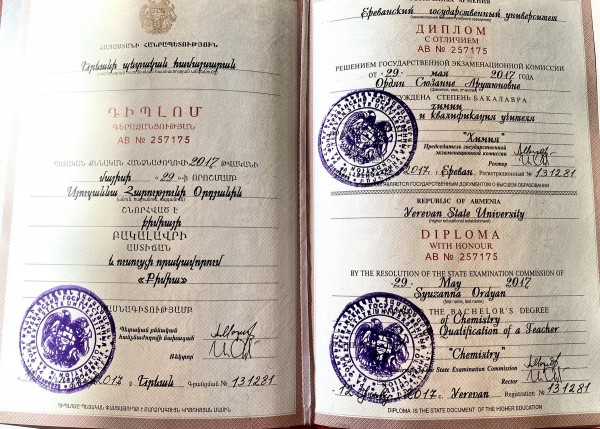 ՀԱՅԱՍՏԱՆԻ ՀԱՆՐԱՊԵՏՈՒԹՅՈՒՆ
Երևանի պետական համալսարան
ԴԻՊԼՈՄ
ԳԵՐԱԶԱՆՑՈՒԹՅԱՆ
AB № 257175
ՊԵՏԱԿԱՆ ՔՆՆԱԿԱՆ ՀԱՆՁՆԱԺՈՂՈՎԻ 2017 ԹՎԱԿԱՆԻ
մայիսի 29 -Ի ՈՐՈՇՄԱՄԲ
Սյուզաննա Հարությունի Օրդյանին
ՇՆՈՐՀՎԱԾ Է
քիմիայի
ԲԱԿԱԼԱՎՐԻ
ԱՍՏԻՃԱՆ
և ուսուցչի որակավորում
«Քիմիա»
Պետական քննական
հանձնաժողովի նախագահ
Ռեկտոր
2017 թ. Երևան Գրանցման № 131281
ԴԻՊԼՈՄԸ ՊԵՏԱԿԱՆ ՓԱՍՏԱԹՈՒՂԹ Է ԲԱՐՁՐԱԳՈՒՅՆ ԿՐԹՈՒԹՅԱՆ ՄԱՍԻՆ
Ереванский государственный университет
ДИПЛОМ
С ОТЛИЧИЕМ
AB № 257175
РЕШЕНИЕМ ГОСУДАРСТВЕННОЙ ЭКЗАМЕНАЦИОННОЙ КОМИССИИ
ОТ «29» мая 2017 ГОДА
Ордян Сюзанне Арутюновне
СТЕПЕНЬ БАКАЛАВРА
химии
и квалификация учителя
"Химия"
Председатель государственной
экзаменационной комиссии
Ректор
2017г. Ереван Регистрационный № 131281
ЯВЛЯЕТСЯ ГОСУДАРСТВЕННЫМ ДОКУМЕНТОМ О ВЫСШЕМ ОБРАЗОВАНИИ
REPUBLIC OF ARMENIA
Yerevan State University
(higher educational establishment)
DIPLOMA
WITH HONOUR
AB № 257175
BY THE RESOLUTION OF THE STATE EXAMINATION COMMISSION OF
29 May 2017
Syuzanna Ordyan
(first name, last name)
THE BACHELOR'S DEGREE
of Chemistry
Qualification of a Teacher
"Chemistry"
State Examination Commission
Rector
2017 Yerevan Registration № 131281
DIPLOMA IS THE STATE DOCUMENT OF THE HIGHER EDUCATION